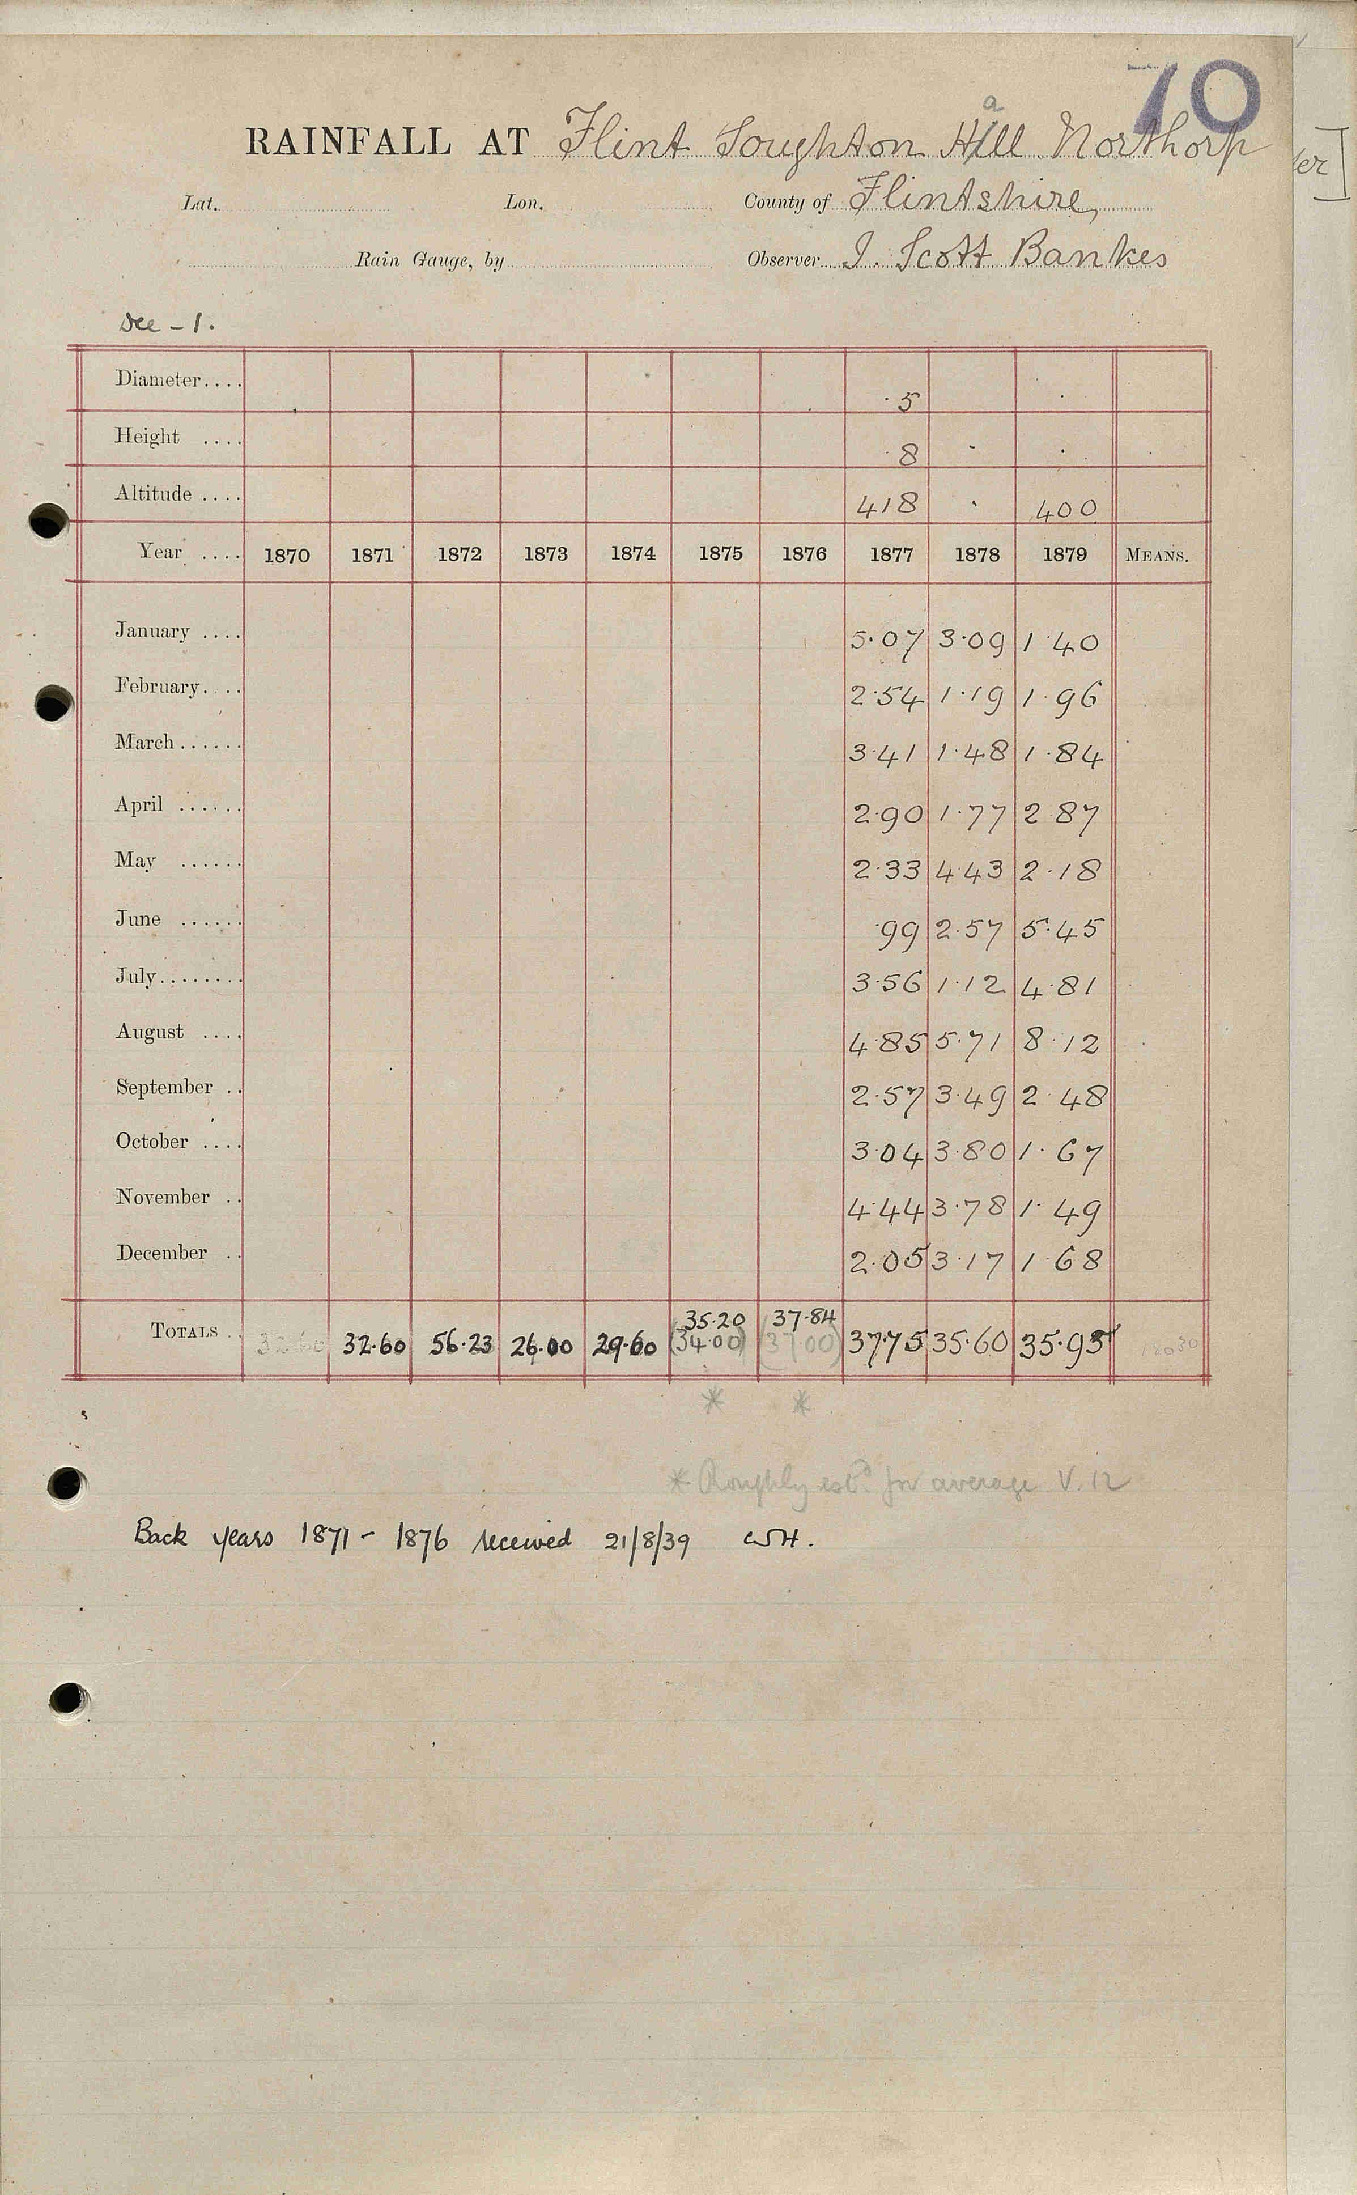 70
a
RAINFALL AT Flint Soughton Hill Northorp
Lat. Lon. County of Flintshire,
Rain Gauge, by Observer J. Scott Bankes
er]
Dee - 1.
Diameter.... 5
Height .... 8
Altitude .... 418 400
Year .... 1870 1871 1872 1873 1874 1875 1876 1877 1878 1879 MEANS.
January .... 5.07 3.09 1.40
February.... 2.54 1.19 1.96
March...... 3.41 1.48 1.84
April ...... 2.90 1.77 2.87
May ...... 2.33 4.43 2.18
June ...... .99 2.57 5.45
July........ 3.56 1.12 4.81
August .... 4.85 5.71 8.12
September .. 2.57 3.49 2.48
October .... 3.04 3.80 1.67
November .. 4.44 3.78 1.49
December .. 2.05 3.17 1.68
35.20 37.84
TOTALS .. 32.60 32.60 56.23 26.00 29.60 (34.00) (37.00) 37.75 35.60 35.95
* *
* Roughly estd. for average V.12
Back years 1871 - 1876 received 21/8/39 WH.